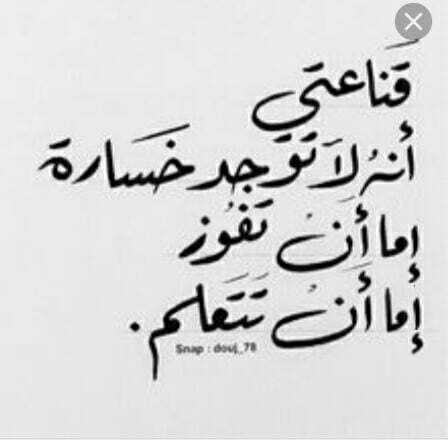 قناعتي
أنهُ لاَ توجد خَسارة
إما أنْ تفُوز
إما أنْ تَتَعلم.
Snap : douj_78